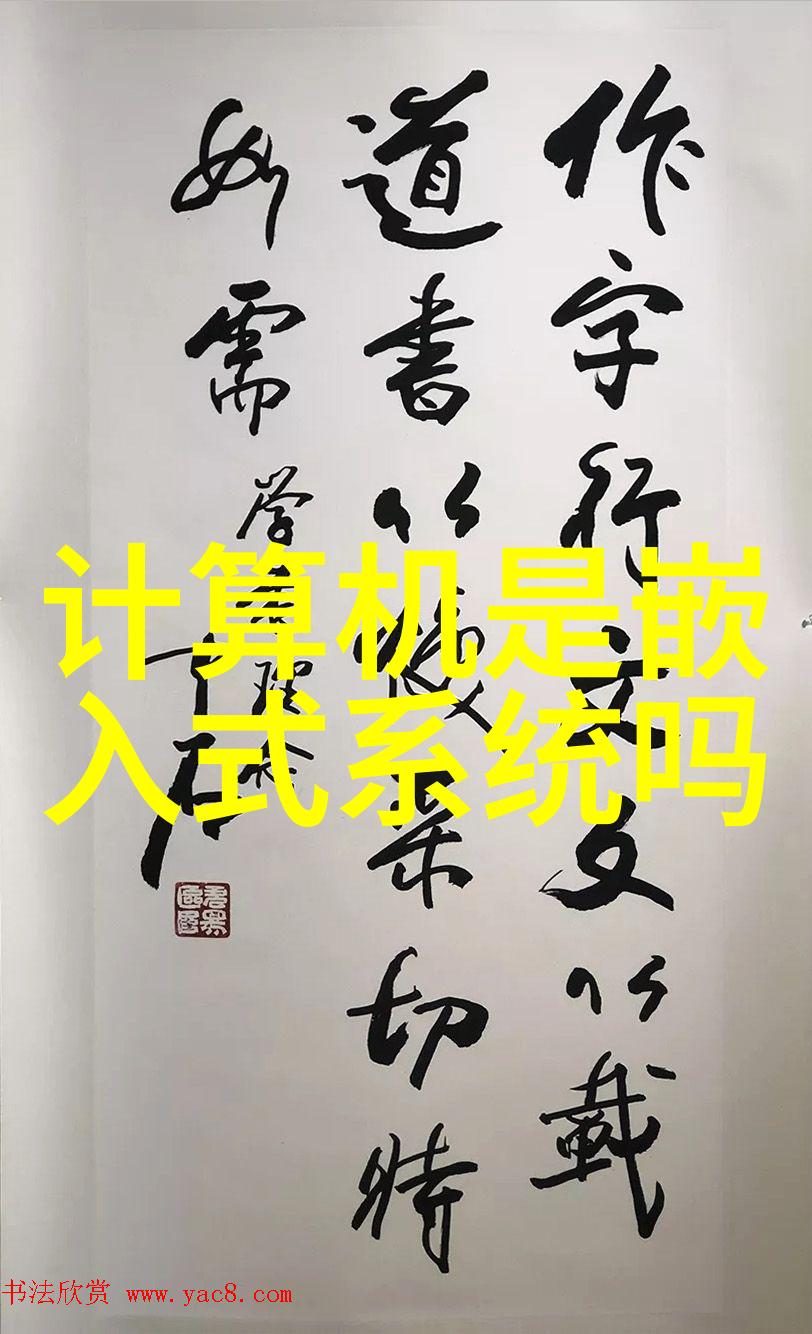 作字行文文以載
道書以采切時
需
学理念
计算机是嵌
入式系统吗
书法欣赏 www.yac8.com